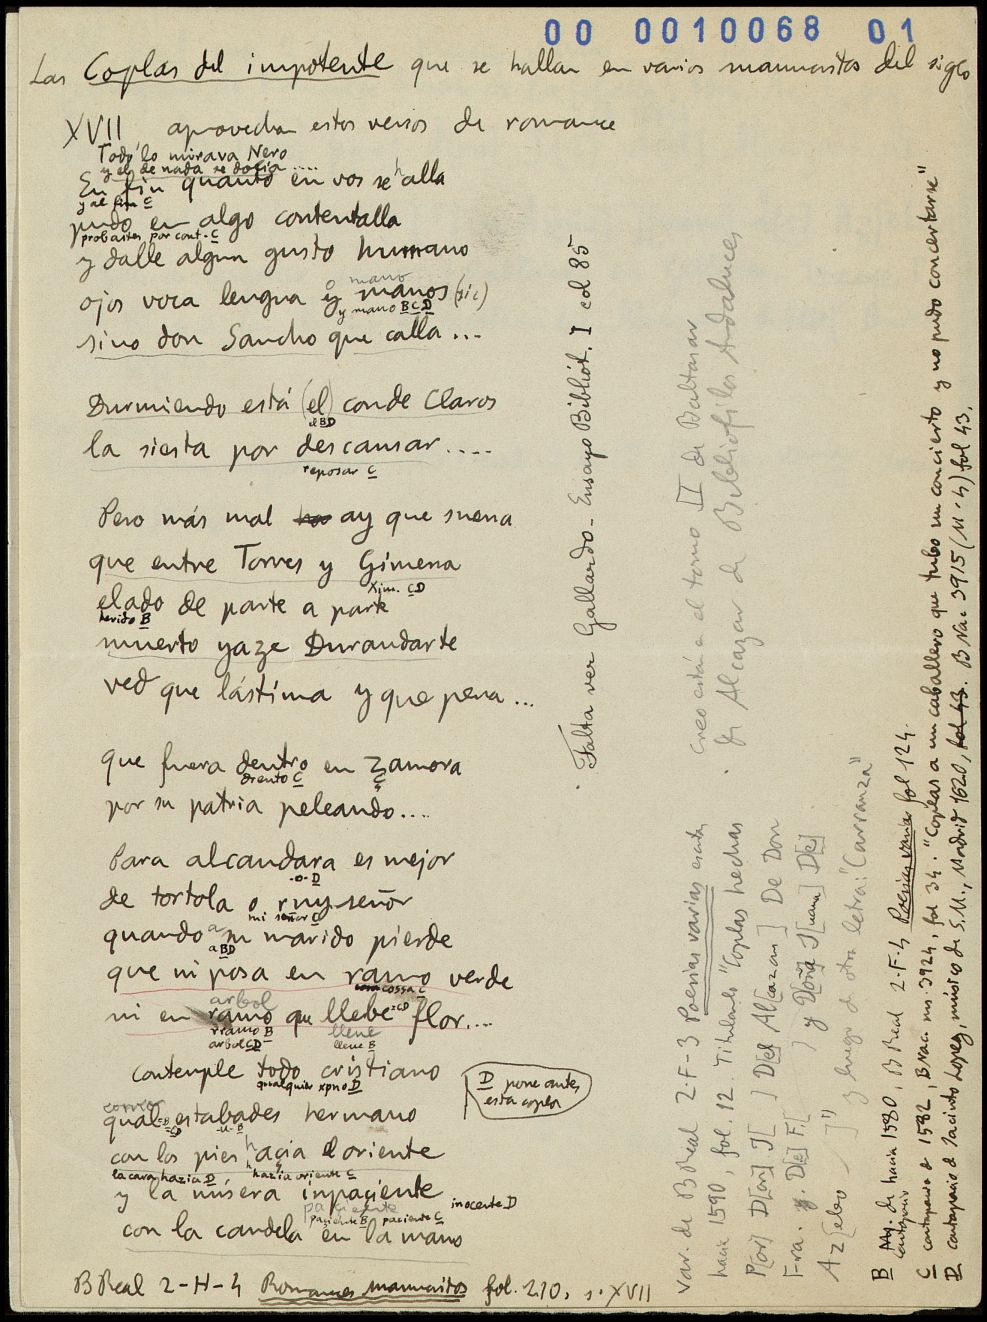 00 0010068 01
Las Coplas del impotente que se hallan en varios manuscritos del siglo
XVII aprovechan estos versos de romance
Todo lo mirava Nero
y él de nada se dolía ....
En fin quanto en vos se halla
y al fin C
pudo en algo contentalla
probastes por cont. C
y dalle algun gusto humano
o mano
ojos voca lengua y manos (sic)
y mano B C D
sino don Sancho que calla ...
Durmiendo está (el) conde Claros
el BD
la siesta por descansar ....
reposar C
Pero más mal ay que suena
que entre Torres y Gimena
Xim. CD
elado de parte a parte
herido B
muerto yaze Durandarte
ved que lástima y que pena ...
que fuera dentro en Zamora
drento C
por su patria peleando ....
Para alcandara es mejor
-o- D
de tortola o ruy señor
mi señor C
quando a su marido pierde
a BD
que ni posa en ramo verde
cossa C
arbol
ni en ramo que llebe flor....
rramo B
arbol CD
llene
llene B
contemple todo cristiano
qualquier xpno D
D pone antes
esta copla
qual estabades hermano
con los pies hacia el oriente
la cara hazia D
hazia oriente C
y la mísera inpaciente
paciente
paziente B paciente C
inocente D
con la candela en la mano
B Real 2-H-4 Romances manuscritos fol. 210, s. XVII
Falta ver Gallardo - Ensayo Bibliót. I col 85
Creo está en el tomo II de Baltasar
de Alcazar de Bibliófilos Andaluces
Var. de B Real 2-F-3 Poesias varias escritas
hacia 1590, fol. 12. Titulando "Coplas hechas
P[or] D[on] J[ ] D[el Al[cazar] De Don
Fra. y. D[e] F[ ] y D[oña J[uana] D[e]
Az[ebo ]") y luego de otra letra: "Carranza"
B Cartapacio de hacia 1580, B Real 2-F-5 Poesias varias fol 124.
C cartapacio de 1582, B Nac. ms 3924, fol 34. "Coplas a un caballero que tubo un concierto y no pudo concertarse"
D cartapacio de Jacinto Lopez, músico de S.M., Madrid 1620, fol 43. B Nac 3915 (M-4) fol 43.